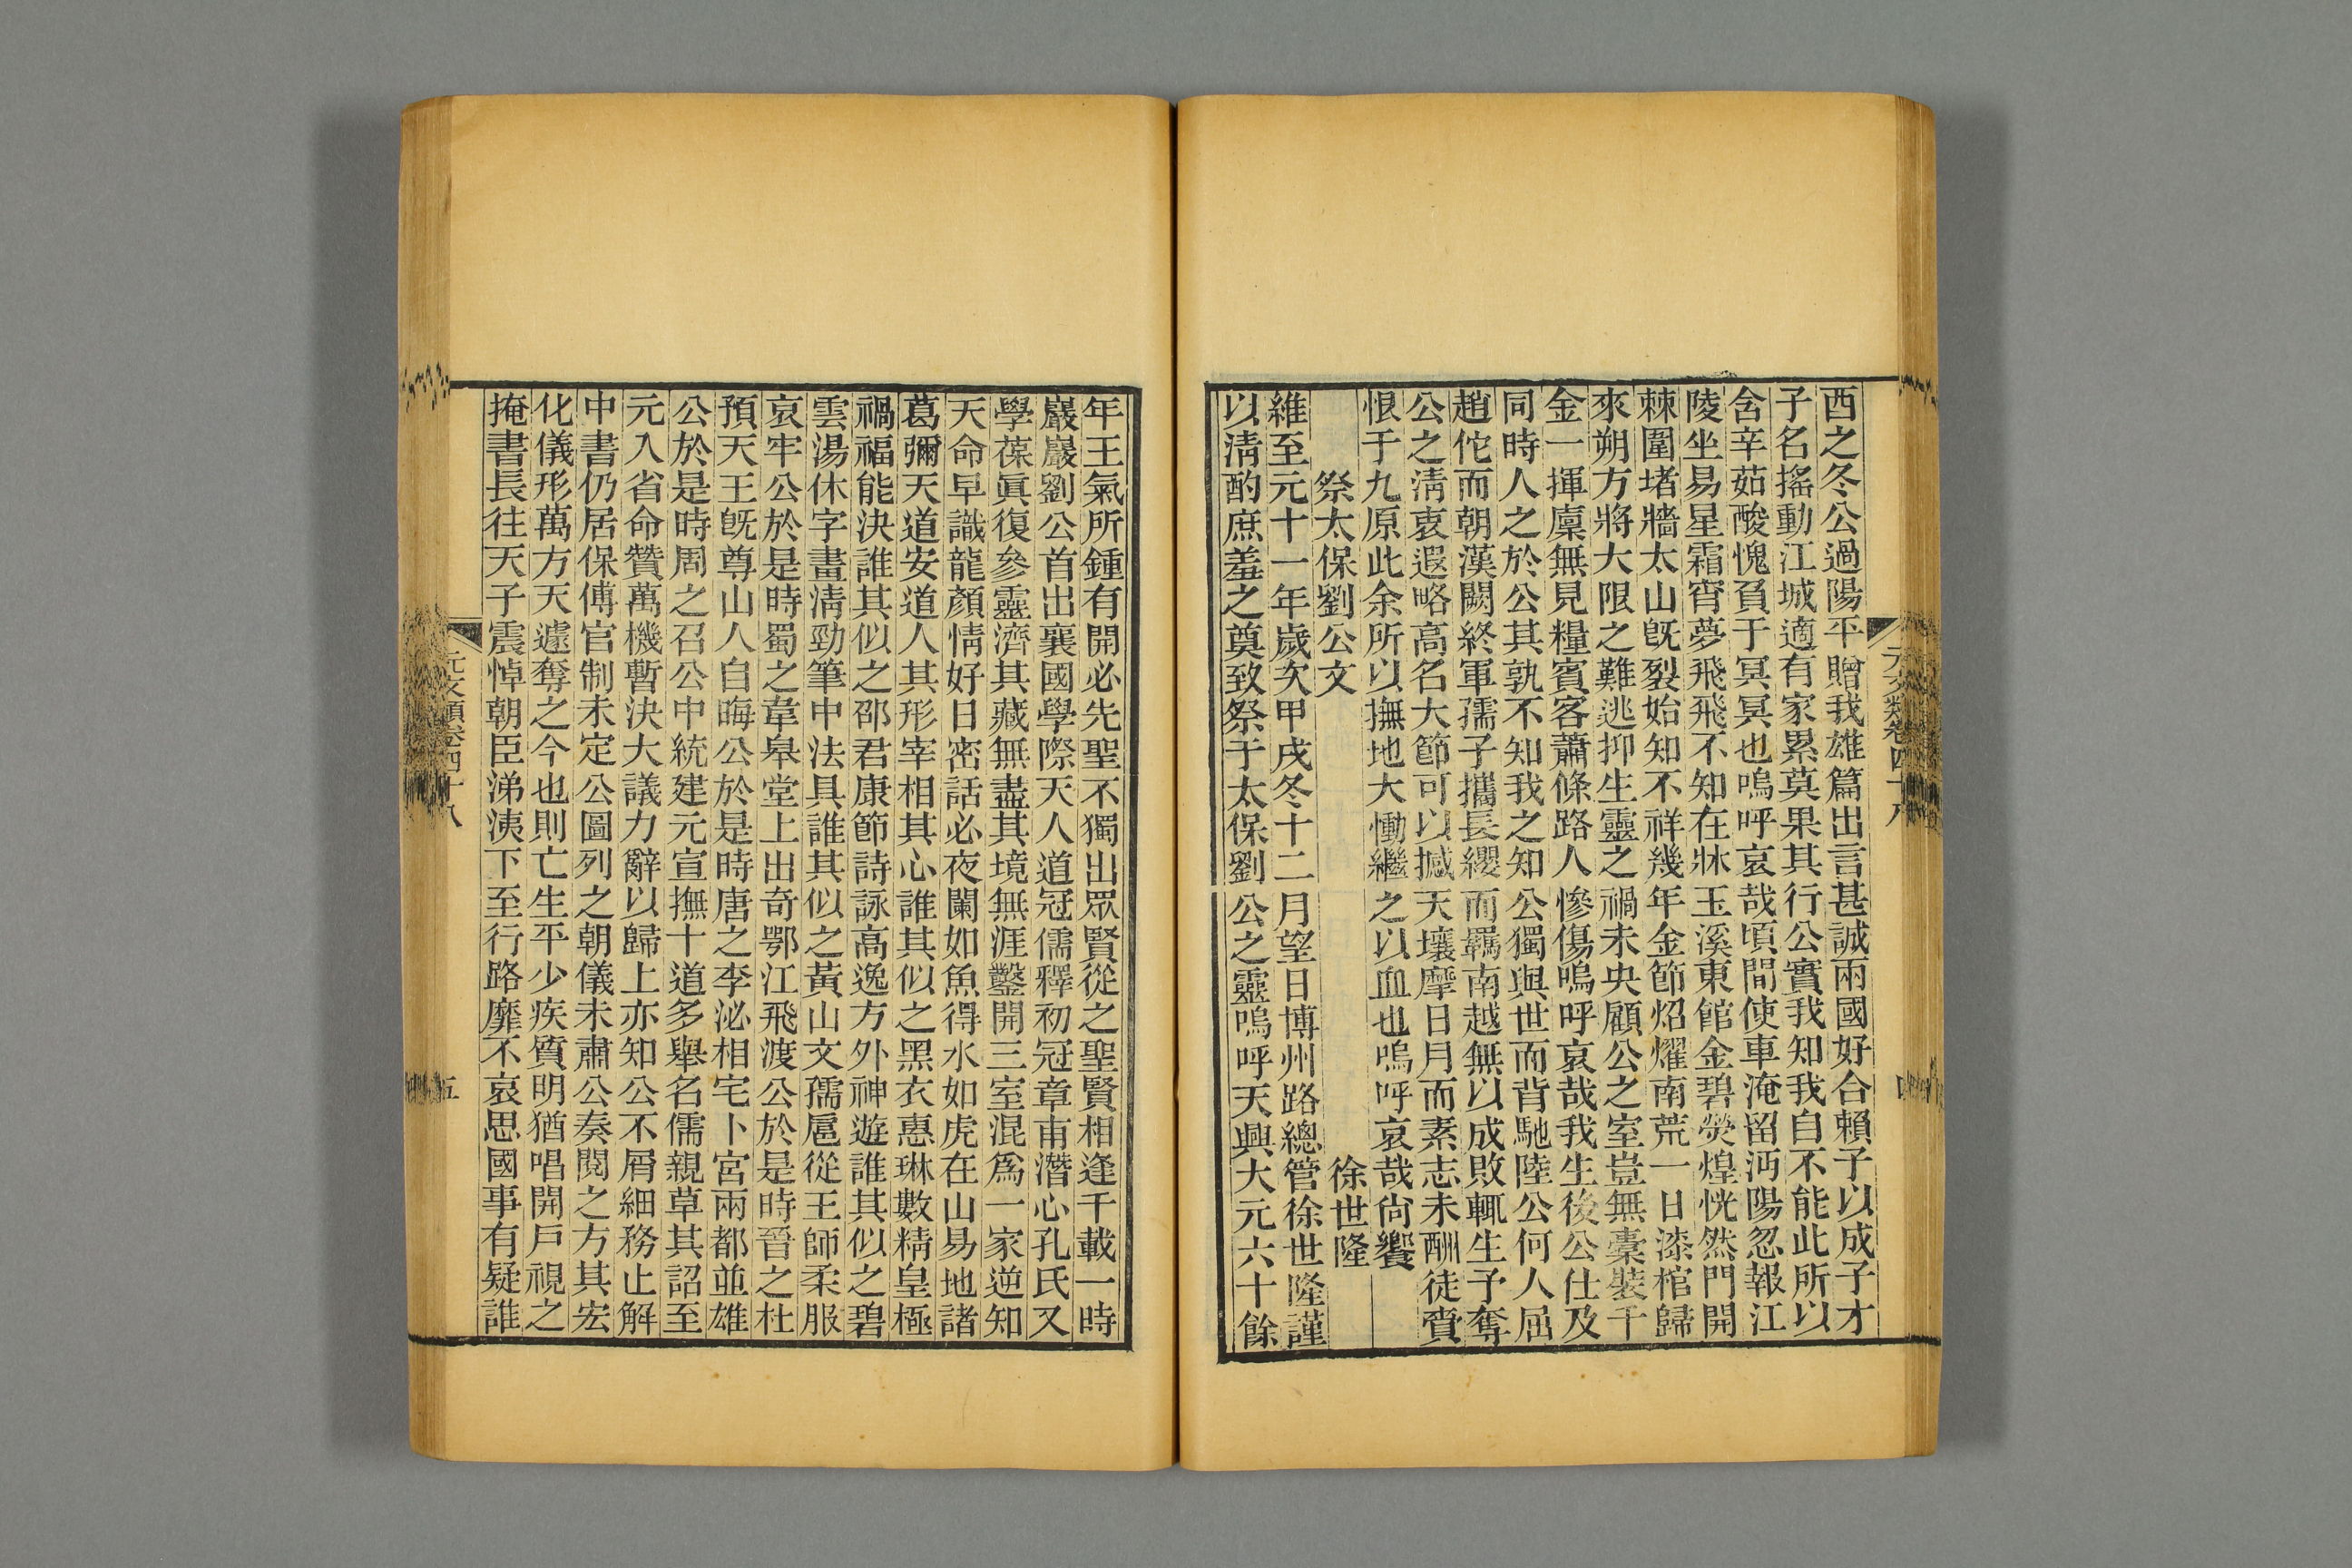 西之冬公過陽平贈我雄篇出言甚誠兩國好合賴子以成子才
子名搖動江城適有家累莫果其行公實我知我自不能此所以
含辛茹酸愧負于冥冥也嗚呼哀哉頃間使車淹留沔陽忽報江
陵坐易星霜宵夢飛飛不知在牀玉溪東館金碧熒煌恍然門開
棘圍堵牆太山旣裂始知不祥幾年金節炤燿南荒一日漆棺歸
來朔方將大限之難逃抑生靈之禍未央顧公之室豈無橐裝千
金一揮廩無見糧賓客蕭條路人慘傷嗚呼哀哉我生後公仕及
同時人之於公其孰不知我之知公獨與世而背馳陸公何人屈
趙佗而朝漢闕終軍孺子攜長纓而羈南越無以成敗輒生予奪
公之淸衷遐略高名大節可以撼天壤摩日月而素志未酬徒賫
恨于九原此余所以撫地大慟繼之以血也嗚呼哀哉尙饗
祭太保劉公文
徐世隆
維至元十一年歲次甲戌冬十二月望日博州路總管徐世隆謹
以淸酌庶羞之奠致祭于太保劉公之靈嗚呼天興大元六十餘
元文類卷四十八
四
年王氣所鍾有開必先聖不獨出眾賢從之聖賢相逢千載一時
巖巖劉公首出襄國學際天人道冠儒釋初冠章甫潛心孔氏又
學葆眞復參靈濟其藏無盡其境無涯鑿開三室混爲一家逆知
天命早識龍顏情好日密話必夜闌如魚得水如虎在山易地諸
葛彌天道安道人其形宰相其心誰其似之黑衣惠琳數精皇極
禍福能決誰其似之邵君康節詩詠高逸方外神遊誰其似之碧
雲湯休字畫淸勁筆中法具誰其似之黃山文孺扈從王師柔服
哀牢公於是時蜀之韋皋堂上出奇鄂江飛渡公於是時晉之杜
預天王旣尊山人自晦公於是時唐之李泌相宅卜宮兩都並雄
公於是時周之召公中統建元宣撫十道多舉名儒親草其詔至
元入省命贊萬機暫決大議力辭以歸上亦知公不屑細務止解
中書仍居保傅官制未定公圖列之朝儀未肅公奏閱之方其宏
化儀形萬方天遽奪之今也則亡生平少疾質明猶唱開戶視之
掩書長往天子震悼朝臣涕洟下至行路靡不哀思國事有疑誰
元文類卷四十八
五